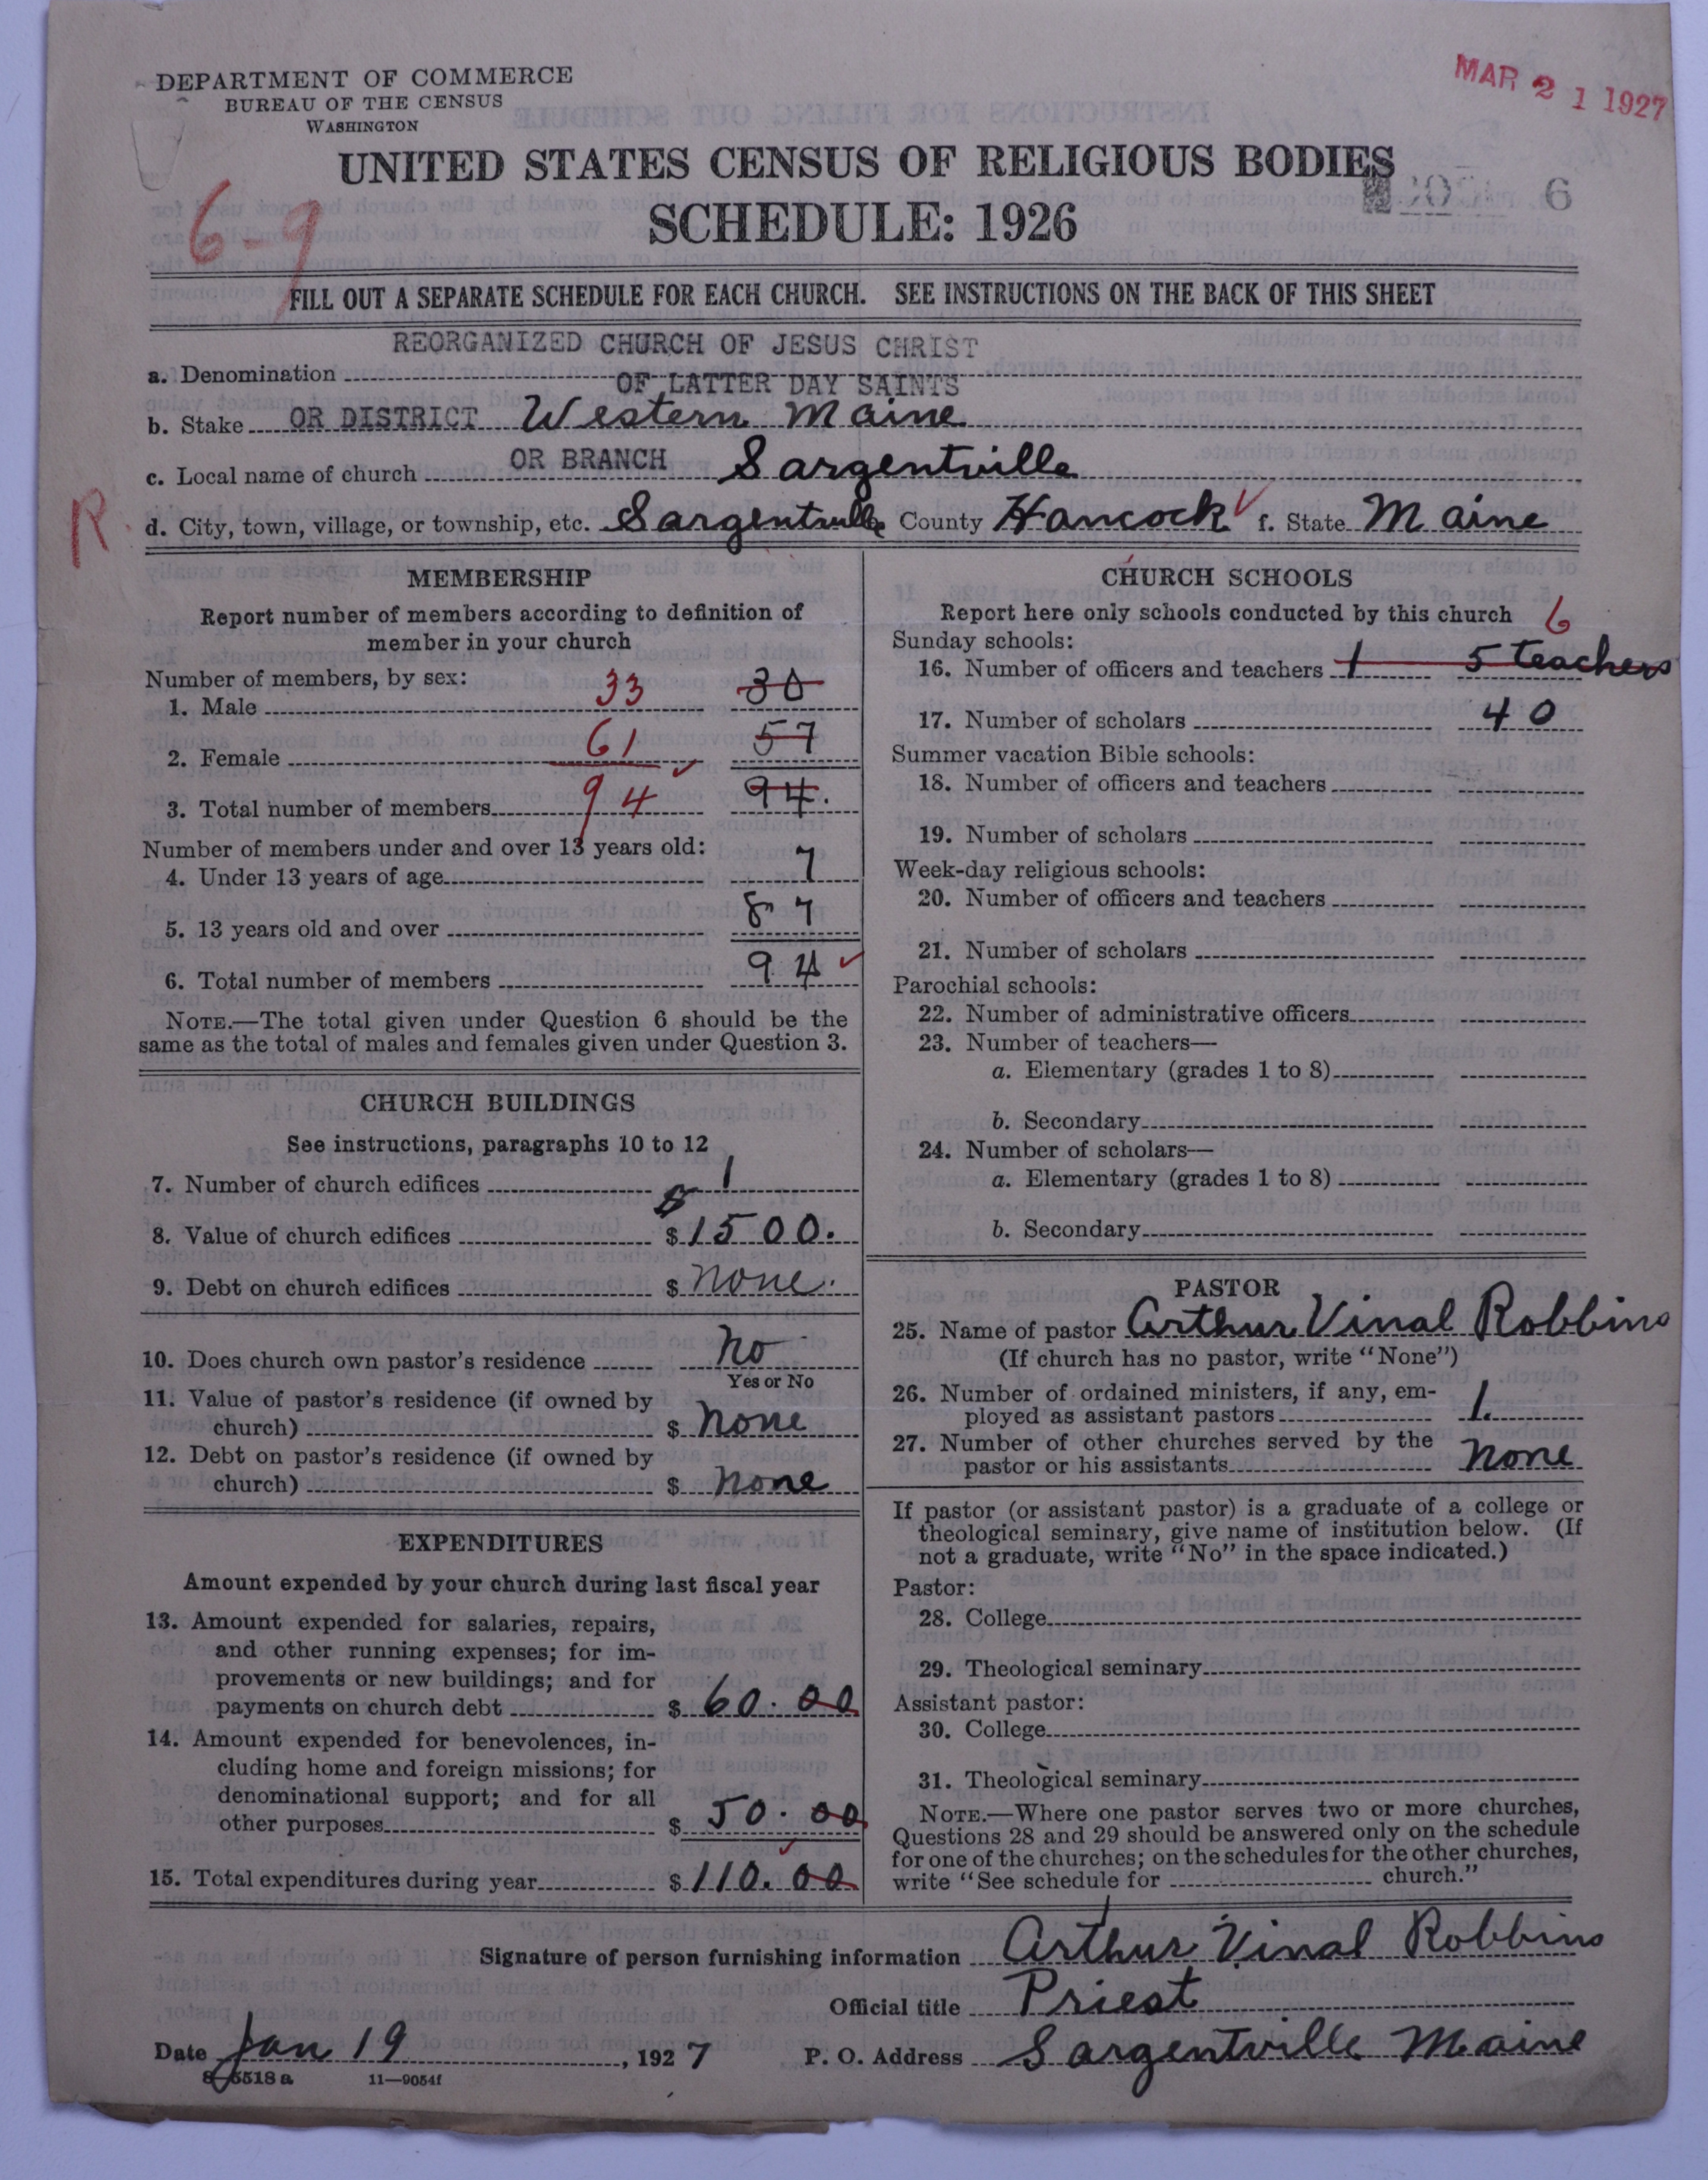 DEPARTMENT OF COMMERCE
BUREAU OF THE CENSUS
WASHINGTON
MAR 21 1927
UNITED STATES CENSUS OF RELIGIOUS BODIES
SCHEDULE: 1926
6
6-9
FILL OUT A SEPARATE SCHEDULE FOR EACH CHURCH. SEE INSTRUCTIONS ON THE BACK OF THIS SHEET
REORGANIZED CHURCH OF JESUS CHRIST
a. Denomination
OF LATTER DAY SAINTS
b. Stake OR DISTRICT Western Maine
c. Local name of church OR BRANCH Sargentville
R.
d. City, town, village, or township, etc. Sargentville County Hancock ✓ f. State Maine
MEMBERSHIP
Report number of members according to definition of
member in your church
Number of members, by sex:
1. Male 33 30
2. Female 61 57
3. Total number of members 94 ✓ 94.
Number of members under and over 13 years old:
4. Under 13 years of age 7
5. 13 years old and over 87
6. Total number of members 94 ✓
NOTE.—The total given under Question 6 should be the
same as the total of males and females given under Question 3.
CHURCH BUILDINGS
See instructions, paragraphs 10 to 12
7. Number of church edifices 1
8. Value of church edifices $ 1500.
9. Debt on church edifices $ none.
10. Does church own pastor's residence no
Yes or No
11. Value of pastor's residence (if owned by
church) $ none
12. Debt on pastor's residence (if owned by
church) $ none
EXPENDITURES
Amount expended by your church during last fiscal year
13. Amount expended for salaries, repairs,
and other running expenses; for im-
provements or new buildings; and for
payments on church debt $ 60.00
14. Amount expended for benevolences, in-
cluding home and foreign missions; for
denominational support; and for all
other purposes $ 50.00
15. Total expenditures during year $ 110.00
CHURCH SCHOOLS
Report here only schools conducted by this church 6
Sunday schools:
16. Number of officers and teachers 1 5 teachers
17. Number of scholars 40
Summer vacation Bible schools:
18. Number of officers and teachers
19. Number of scholars
Week-day religious schools:
20. Number of officers and teachers
21. Number of scholars
Parochial schools:
22. Number of administrative officers
23. Number of teachers—
a. Elementary (grades 1 to 8)
b. Secondary
24. Number of scholars—
a. Elementary (grades 1 to 8)
b. Secondary
PASTOR
25. Name of pastor Arthur Vinal Robbins
(If church has no pastor, write "None")
26. Number of ordained ministers, if any, em-
ployed as assistant pastors 1.
27. Number of other churches served by the
pastor or his assistants none
If pastor (or assistant pastor) is a graduate of a college or
theological seminary, give name of institution below. (If
not a graduate, write "No" in the space indicated.)
Pastor:
28. College
29. Theological seminary
Assistant pastor:
30. College
31. Theological seminary
NOTE.—Where one pastor serves two or more churches,
Questions 28 and 29 should be answered only on the schedule
for one of the churches; on the schedules for the other churches,
write "See schedule for church."
Signature of person furnishing information Arthur Vinal Robbins
Official title Priest
Date Jan 19, 1927 P. O. Address Sargentville Maine
8-5518 a 11—9054f